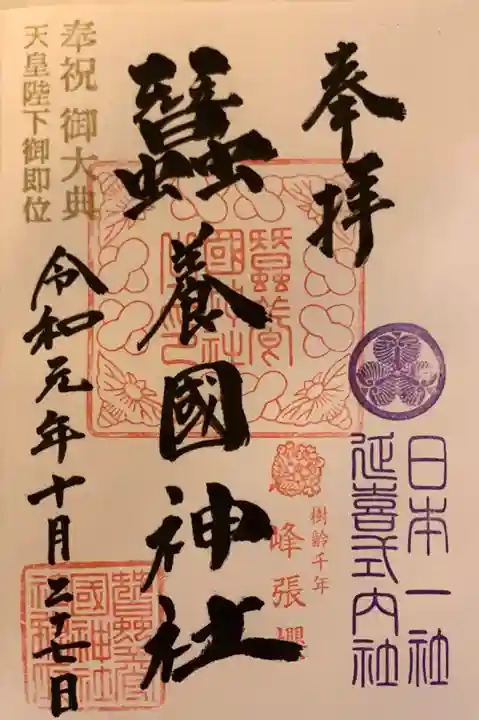 奉拝
日本一社
延喜式内社
樹齢千年
峰張櫻
蠶養國神社
奉祝 御大典
天皇陛下御即位
令和元年十月二十七日